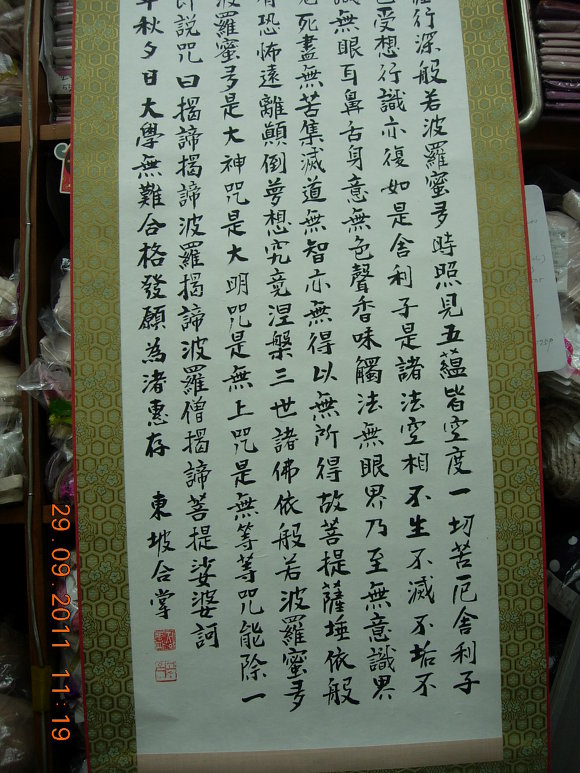 行深般若波羅蜜多時照見五蘊皆空度一切苦厄舍利子
受想行識亦復如是舍利子是諸法空相不生不滅不垢不
識無眼耳鼻舌身意無色聲香味觸法無眼界乃至無意識界
死盡無苦集滅道無智亦無得以無所得故菩提薩埵依般
有恐怖遠離顛倒夢想究竟涅槃三世諸佛依般若波羅蜜多
波羅蜜多是大神咒是大明咒是無上咒是無等等咒能除一
即說咒曰揭諦揭諦波羅揭諦波羅僧揭諦菩提娑婆訶
年秋夕日大學無難合格發願為渚惠存 東坡合掌
29.09.2011 11:19